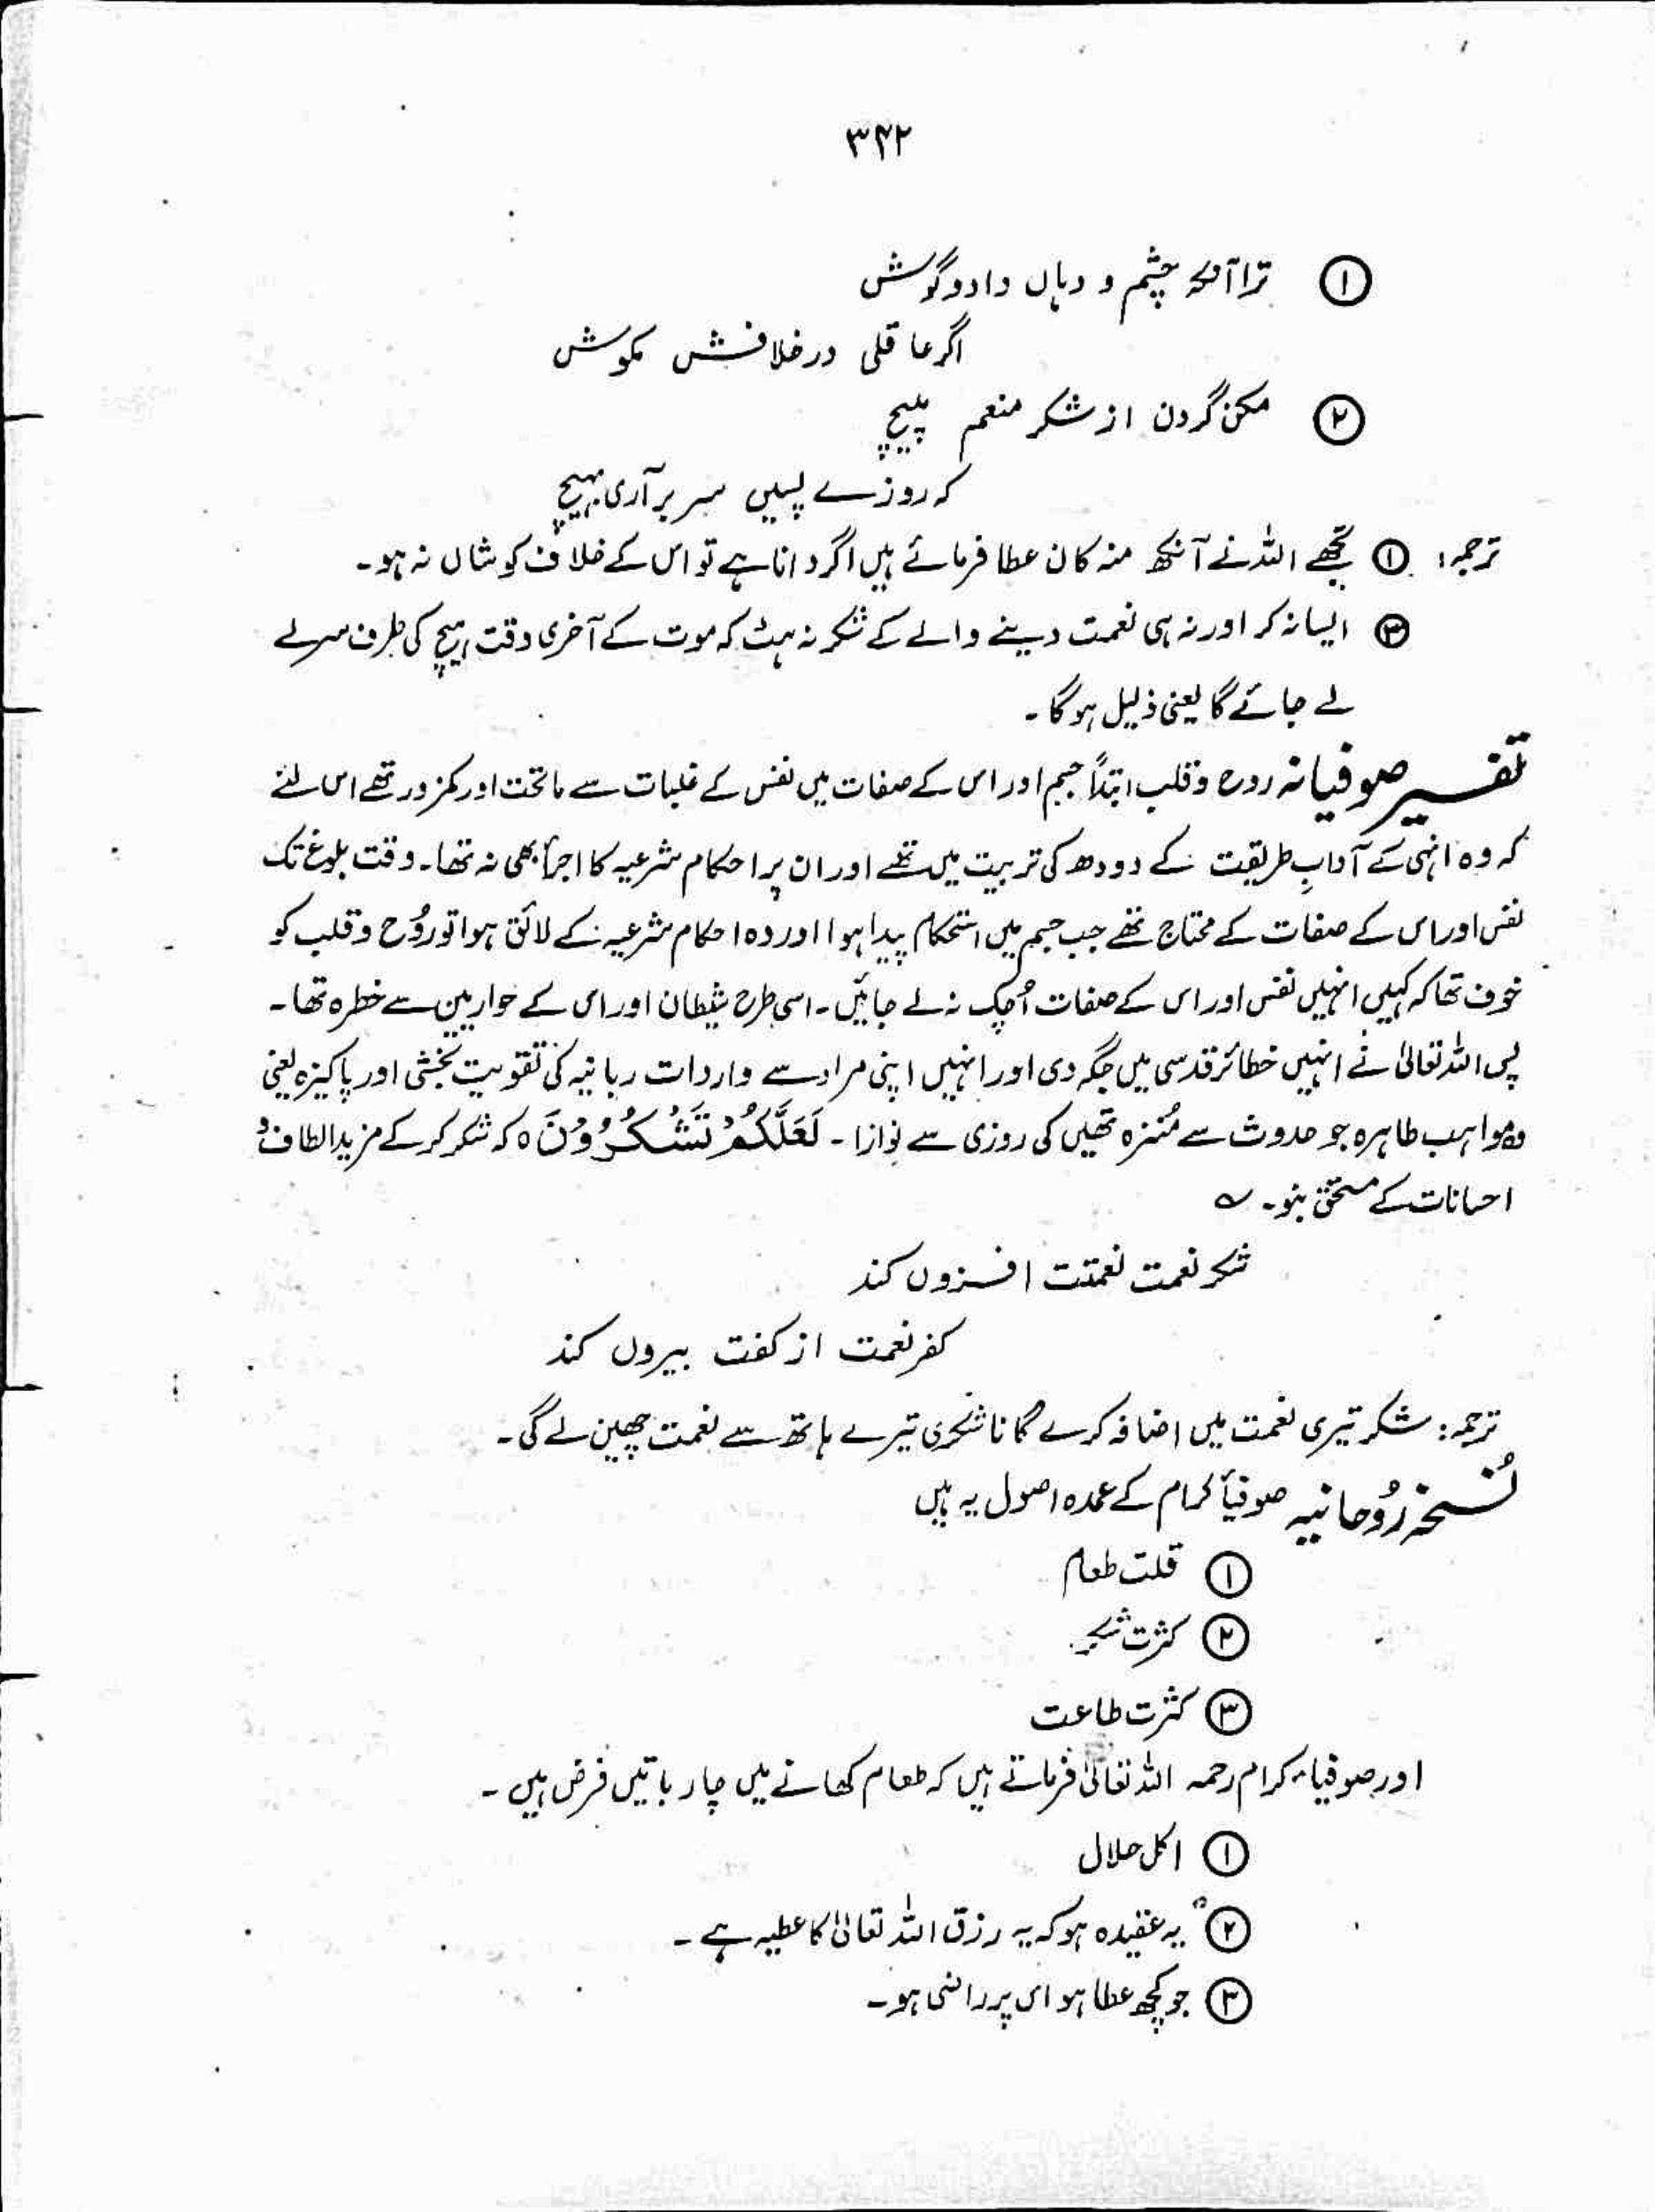 ۳۴۲
① ترا آنکہ چشم و دہاں داد و گوش
اگر عاقلی در خلافش مکوش
② مکن گردن از شکر منعم پیچ
کہ روزے پسیں سر بر آری بہیچ
ترجمہ: ① تجھے اللہ نے آنکھ منہ کان عطا فرمائے ہیں اگر دانا ہے تو اس کے خلاف کوشاں نہ ہو۔
③ ایسا نہ کر اور نہ ہی نعمت دینے والے کے شکر نہ ہٹ کہ موت کے آخری وقت ہیچ کی طرف سر لے
لے جائے گا یعنی ذلیل ہو گا۔
تفسیر صوفیانہ روح و قلب ابتداً جسم اور اس کے صفات میں نفس کے غلبات سے ماتحت اور کمزور تھے اس لئے
کہ وہ انہی کے آدابِ طریقت کے دودھ کی تربیت میں تھے اور ان پر احکام شرعیہ کا اجرأ بھی نہ تھا۔ وقت بلوغ تک
نفس اور اس کے صفات کے محتاج تھے جب جسم میں استحکام پیدا ہوا اور وہ احکام شرعیہ کے لائق ہوا تو رُوح و قلب کو
خوف تھا کہ کہیں انہیں نفس اور اس کے صفات اُچک نہ لے جائیں۔ اسی طرح شیطان اور اس کے حواریین سے خطرہ تھا۔
پس اللہ تعالیٰ نے انہیں خطائر قدسی میں جگہ دی اور انہیں اپنی مراد سے واردات ربانیہ کی تقویت بخشی اور پاکیزہ یعنی
وہ مواہب طاہرہ جو حدوث سے مُنزہ تھیں کی روزی سے نوازا۔ لَعَلَّكُمْ تَشْكُرُوْنَ ہ کہ شکر کر کے مزید الطاف و
احسانات کے مستحق بنو۔ ؎
شکر نعمت نعمتت افزوں کند
کفر نعمت از کفت بیروں کند
ترجمہ: شکر تیری نعمت میں اضافہ کرے گا ناشکری تیرے ہاتھ سے نعمت چھین لے گی۔
نُسخہ رُوحانیہ صوفیأ کرام کے عمدہ اصول یہ ہیں
① قلت طعام
② کثرت شکر
③ کثرت طاعت
اور صوفیاء کرام رحمہ اللہ تعالیٰ فرماتے ہیں کہ طعام کھانے میں چار باتیں فرض ہیں۔
① اکل حلال
② یہ عقیدہ ہو کہ یہ رزق اللہ تعالیٰ کا عطیہ ہے۔
③ جو کچھ عطا ہو اس پر راضی ہو۔